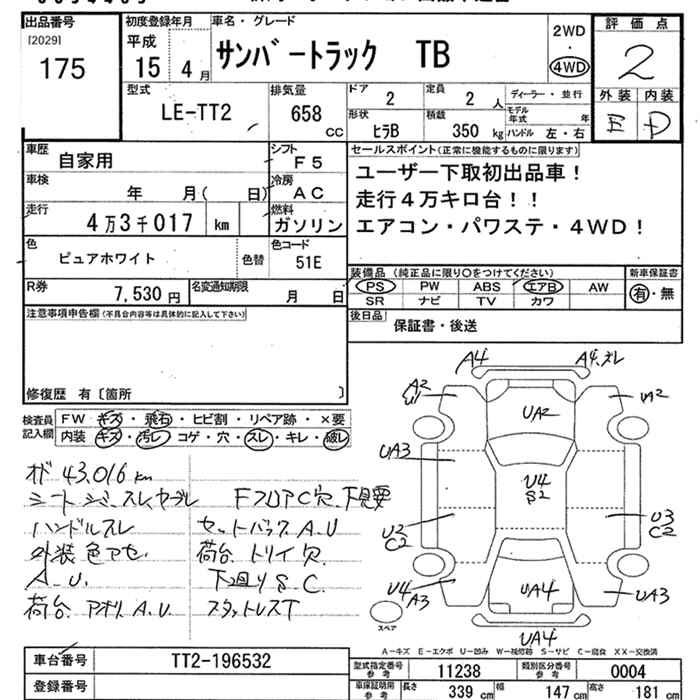 出品番号
[2029]
175
初度登録年月
平成
15年 4月
車名・グレード
サンバートラック TB
2WD
・
4WD
評価点
2
外装 内装
E D
型式
LE-TT2
排気量
658 CC
ドア
2
定員
2人
形状
ヒラB
積載
350 kg
ディーラー・並行
モデル年式 年
ハンドル 左・右
車歴
自家用
シフト
F5
車検
年 月( 日)
冷房
AC
走行
4万3千017 km
燃料
ガソリン
色
ピュアホワイト
色替
色コード
51E
R券
7,530円
名変通知期限
月 日
セールスポイント(正常に機能するものに限ります)
ユーザー下取初出品車!
走行4万キロ台!!
エアコン・パワステ・4WD!
装備品 (純正品に限り○をつけてください)
新車保証書
PS PW ABS エアB AW
SR ナビ TV カワ
有・無
後日品
保証書・後送
注意事項申告欄(不具合内容等は具体的に記入して下さい)
修復歴 有〔箇所 〕
検査員記入欄
FW キズ・飛石・ヒビ割・リペア跡・×要
内装 キズ・汚レ コゲ・穴・スレ・キレ・破レ
オド 43,016 km
シートシミ、スレ、ヤブレ
ハンドルスレ
外装色アセ、
A.U.
荷台アオリ A.U
FフロアC穴下見要
セットバックA.U
荷台トリイ穴
下回りS.C.
スタットレスT
A4
A4.スレ
A2
U
UA2
UA2
UA3
U4
S2
U2
C2
U3
C2
U4
A3
UA4
UA3
UA4
スペア
A-キズ E-エクボ U-凹み W-補修跡 S-サビ C-腐食 XX-交換済
車台番号
TT2-196532
登録番号
型式指定番号 参考
11238
類別区分番号 参考
0004
車検証明用 参考
長さ 339 cm
幅 147 cm
高さ 181 cm